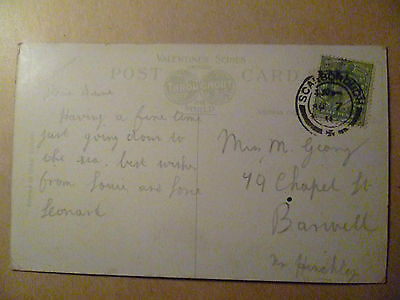 VALENTINE'S SERIES
POST CARD
FAMOUS THROUGHOUT THE WORLD
SCARBOROUGH
7
11
Dear
Having a fine time
just going down to
the sea. best wishes
from Louie and
Leonard
Miss M. Geary
79 Chapel St
Barwell
Nr Hinckley